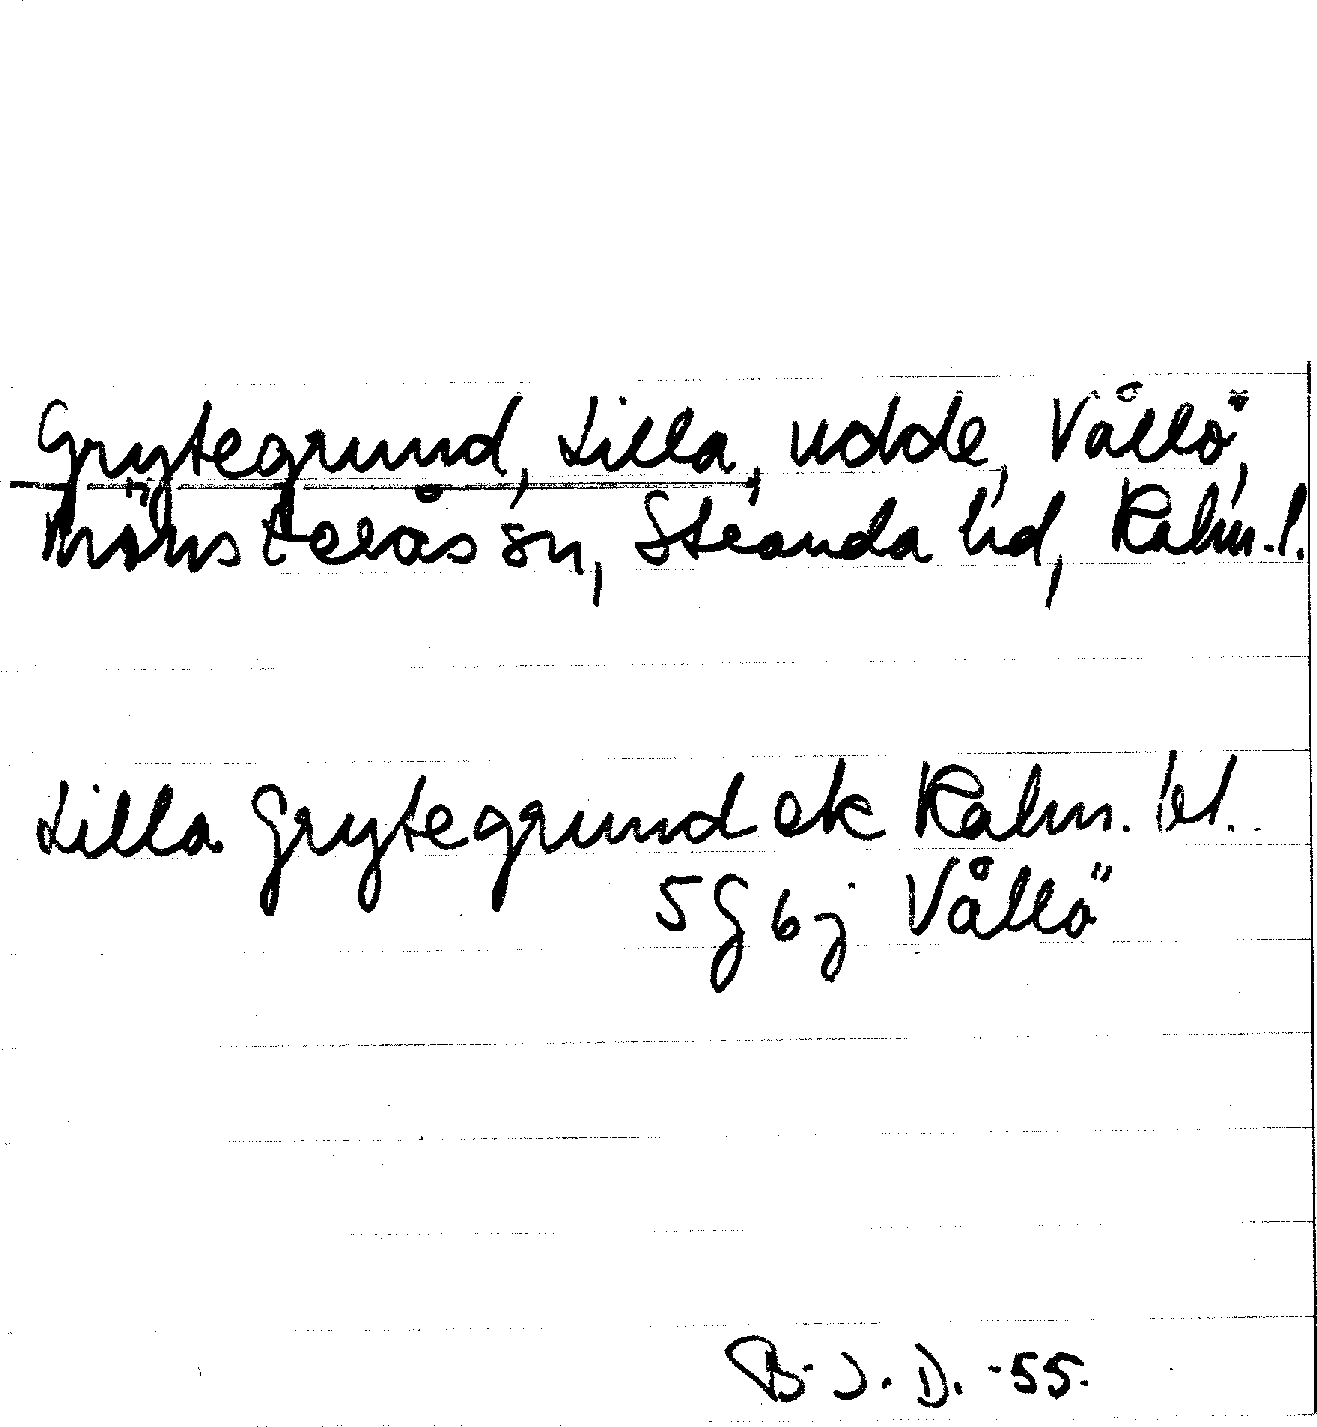 Grytegrund, Lilla, udde, Vållö,
Mönsterås sn, Stranda hd, Kalm. l.
Lilla Grytegrund ek Kalm. bl.
5 G 6 j Vållö
B. J. D. -55.